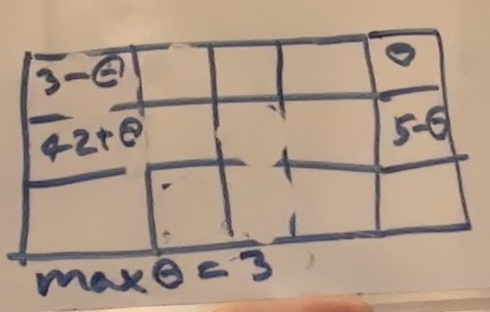 3-θ θ
42+θ 5-θ
max θ = 3